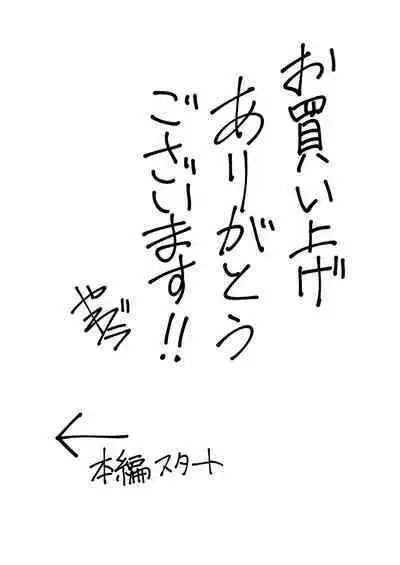 お買い上げ
ありがとう
ございます!!
本編スタート